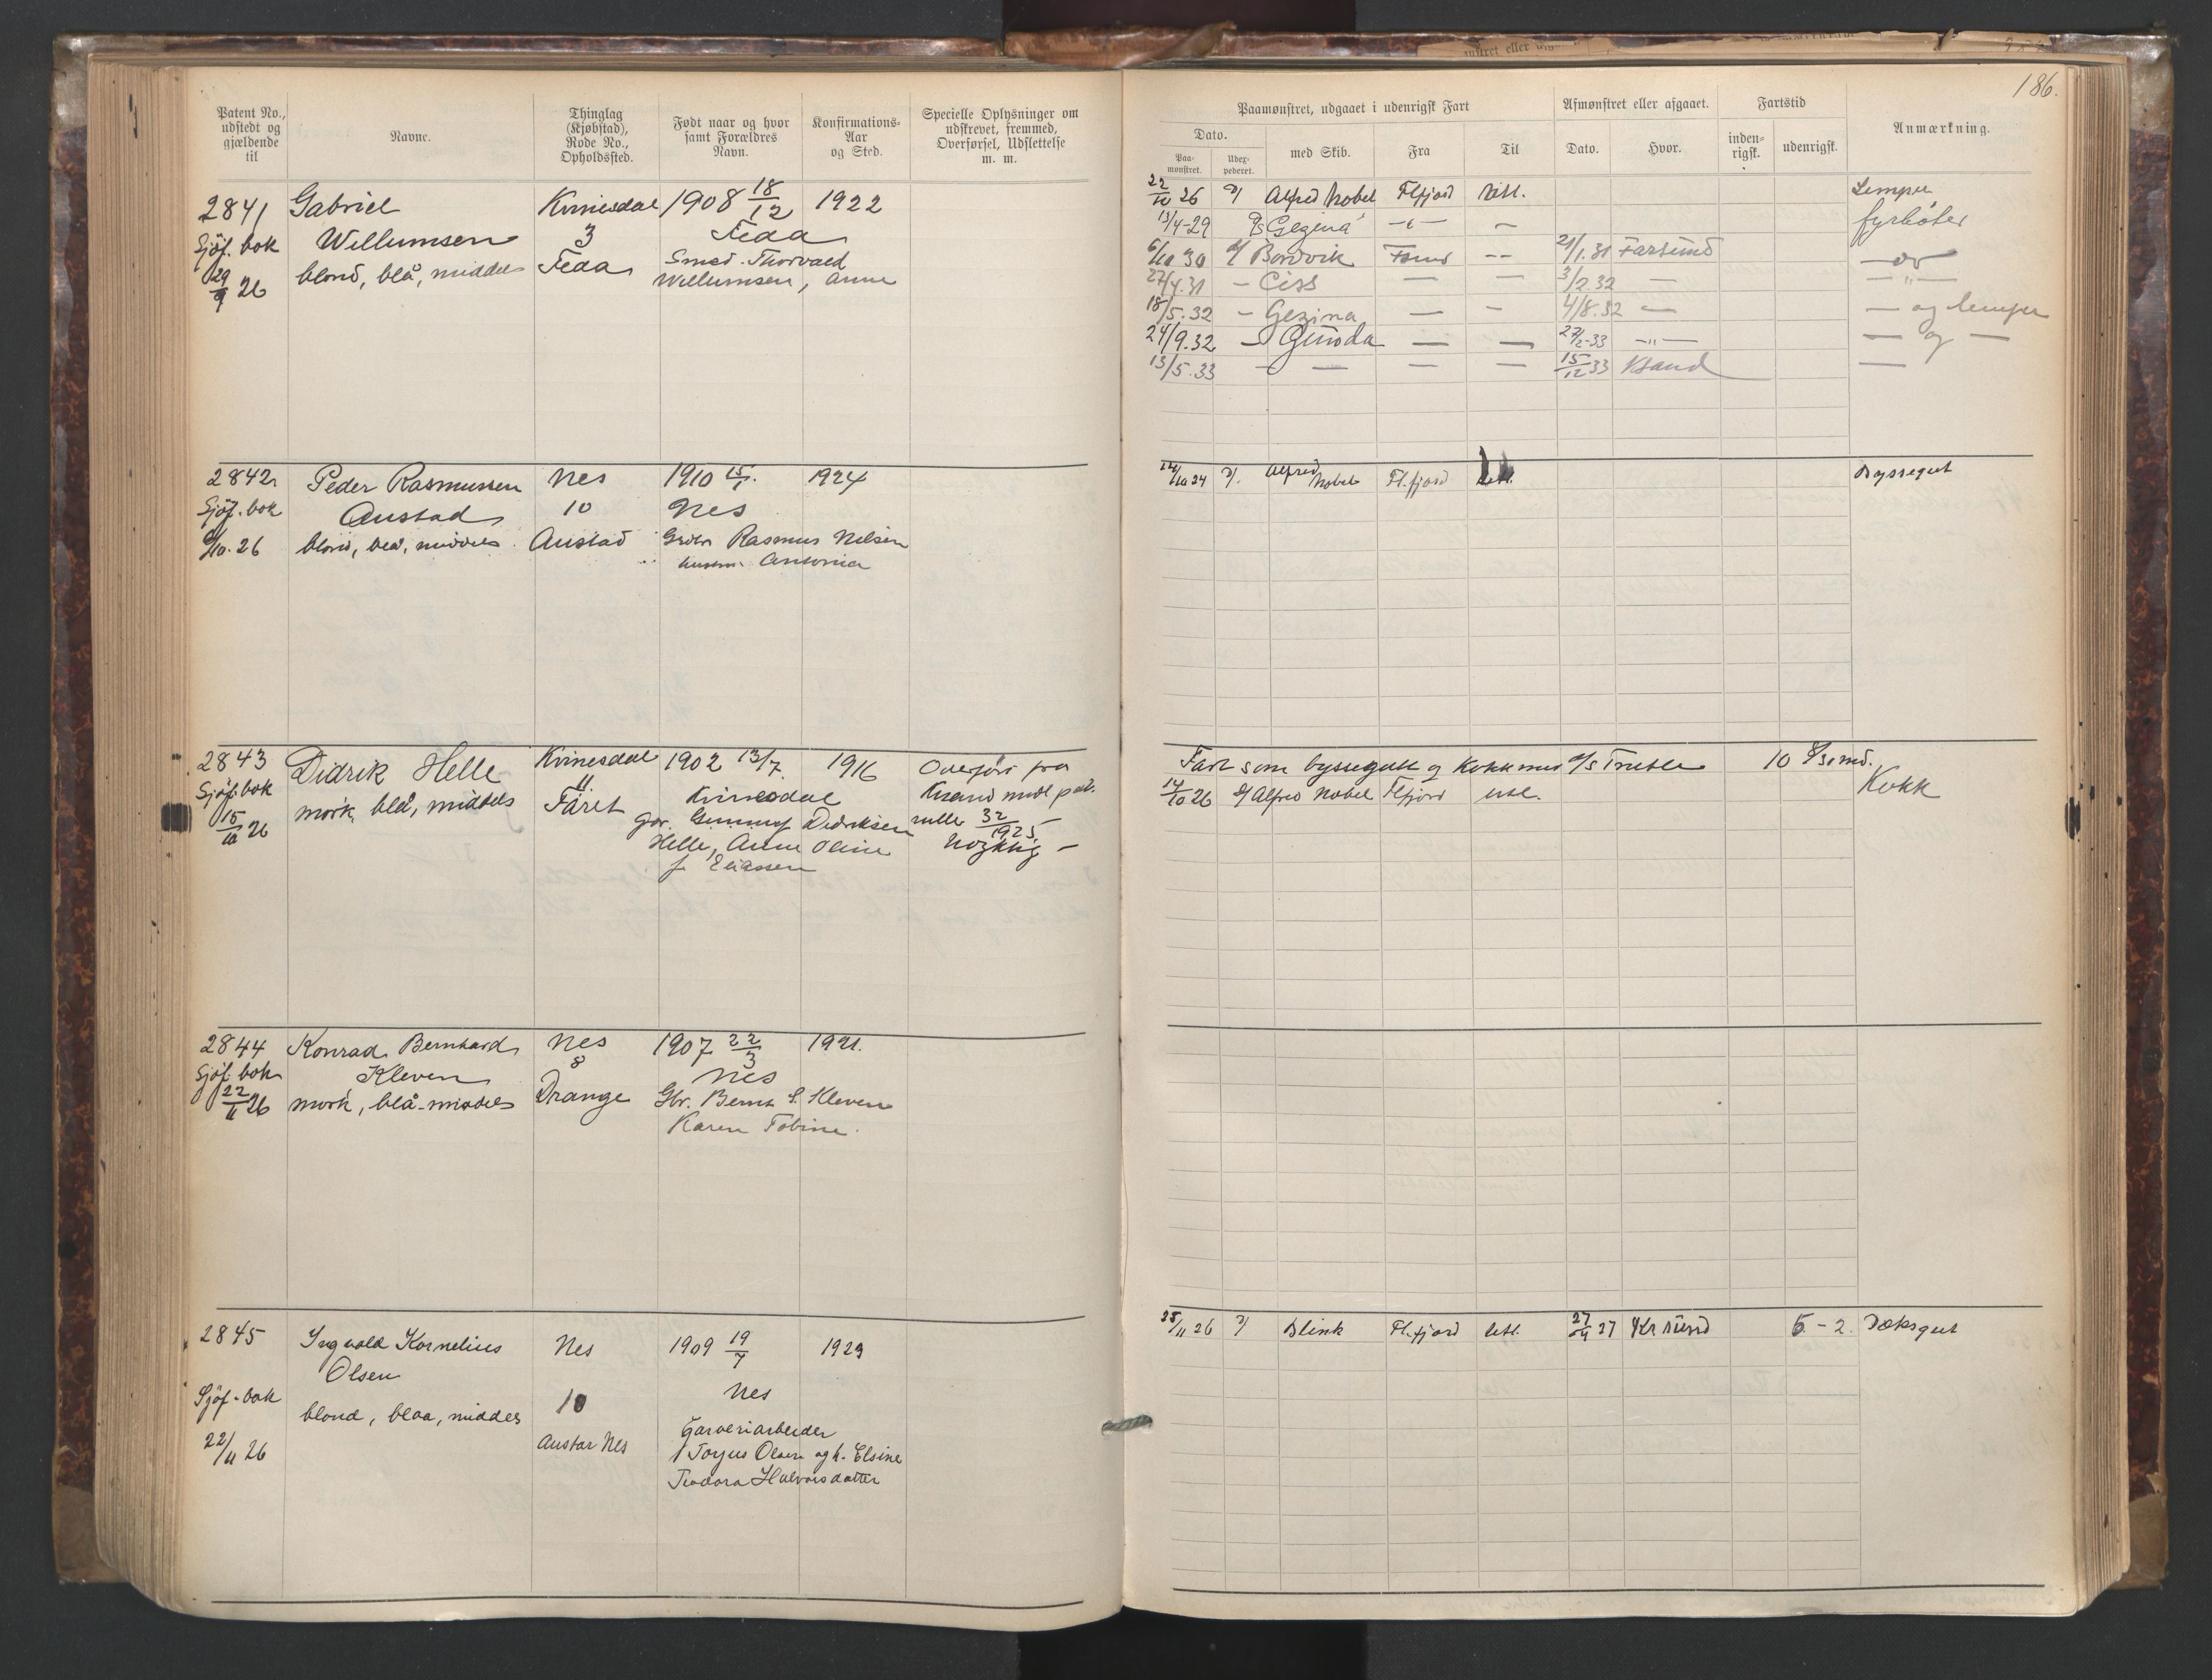 186.
Patent No., udstedt og gjældende til
Navne.
Thinglag (Kjøbstad), Rode No., Opholdssted.
Født naar og hvor samt Forældres Navn.
Konfirmations-Aar og Sted.
Specielle Oplysninger om udskrevet, fremmed, Overførsel, Udslettelse m. m.
Paamønstret, udgaaet i udenrigsk Fart
Afmønstret eller afgaaet.
Fartstid
Anmærkning.
Dato.
Paa-mønstret.
Udex-pederet.
med Skib.
Fra
Til
Dato.
Hvor.
inden-rigsk.
udenrigsk.
2841 Gabriel Kvinesdal 1908 18/12 1922
Sjöf. bok Willumsen 3 Feda
29/9 26 blond, blå, middels Feda Smed Thorvald
Willumsen, Anne
22/10 26 Alfred Nobel Flfjord Utl. Lemper
13/4-29 Gezina fyrbøter
6/10 30 Bordvik Fsund 21/1.31 Farsund
27/4.31 – Ciss — — 3/2.32 —
18/5.32 – Gezina — — 4/8.32 — — og lemper
24/9.32 – Gunda — — 27/2-33 —"— — og —
13/5.33 — — — — 15/12 33 Ksand —
2842 Peder Rasmussen Nes 1910 15/1. 1924
Sjöf. bok Austad 10 Nes
/10.26 blond, blå, middels Austad Rasmus Nilsen
Antonia
Alfred Nobel Fl.fjord Utl. Byssegut
2843 Didrik Helle Kvinesdal 1902 13/7. 1916 Overført fra
Sjöf. bok mørk, blå, middels 11 Kvinesdal
15/10 26 Fåret Gummy Didriksen rulle 32/1925
Helle, Anne Oline
f. Eliassen
Fart som byssegutt og Kokk
14/10 26 Alfred Nobel Flfjord utl. Kokk
2844 Konrad Bernhard Nes 1907 22/3 1921.
Sjöf. bok Kleven 8 Nes
22/11 26 mørk, blå, middels Drange Gbr. Bernt S. Kleven
Karen Tobine.
2845 Ingvald Kornelius Nes 1909 19/7 1923
Olsen
Sjöf. bok 10 Nes
blond, blaa, middels
22/11 26 Austar Nes Garveriarbeider
Torjus Olsen og h. Elsine
Teodora Halvorsdatter
25/11 26 Blink Fl.fjord Utl. 27/4 27 Kr sund 5 – 2. Dæksgut